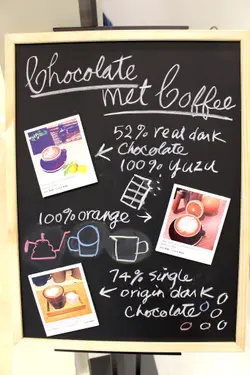 Chocolate
met Coffee
52% real dark
Chocolate
100% yuzu
100% orange
74% single
origin dark
Chocolate